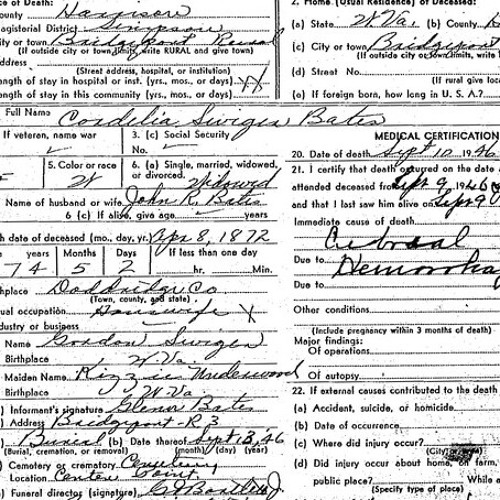 ce of Death:
County Harrison
agisterial District Simpson
City or town Bridgeport Rural
(If outside city or town limits, write RURAL and give town)
address
(Street address, hospital, or institution)
ength of stay in hospital or inst. (yrs., mos., or days)
ength of stay in this community. (yrs., mos., or days)
2. Home (Usual Residence) of Deceased:
(a) State W. Va. (b) County
(c) City or town Bridgeport
(If outside city or town limits, write
(d) Street No.
(If rural give loca
(e) If foreign born, how long in U. S. A.?
Full Name Cordelia Swiger Bates
If veteran, name war
3. (c) Social Security
No.
5. Color or race
W
6. (a) Single, married, widowed,
or divorced. Widowed
Name of husband or wife John R. Bates
6 (c) If alive, give age years
th date of deceased (mo., day, yr.) Apr 8, 1872
years Months Days If less than one day
74 5 2 hr. Min.
hplace Doddridge Co.
(Town, county, and state)
ual occupation Housewife X
dustry or business
Name Gordon Swiger
Birthplace W. Va.
Maiden Name Kizzie Underwood
Birthplace W. Va
) Informent's signature Glenor Bates
) Address Bridgeport - R 3
) Burial (b) Date thereof Sept 13, '46
(Burial, cremation, or removal) (month) (day) (year)
) Cemetery or crematory Cemetery
Location Center Point
) Funeral director (signature)
MEDICAL CERTIFICATION
20. Date of death Sept 10 1946
21. I certify that death occurred on the date a
attended deceased from Sept 9 1946
and that I last saw him alive on Sept 9
Immediate cause of death
Cerebral
Due to Hemorrhag
Due to
Other conditions
(Include pregnancy within 3 months of death)
Major findings:
Of operations
Of autopsy
22. If external causes contributed to the death
(a) Accident, suicide, or homicide
(b) Date of occurrence
(c) Where did injury occur?
(City or
(d) Did injury occur about home, on farm,
public place? While
(Specify type of place)